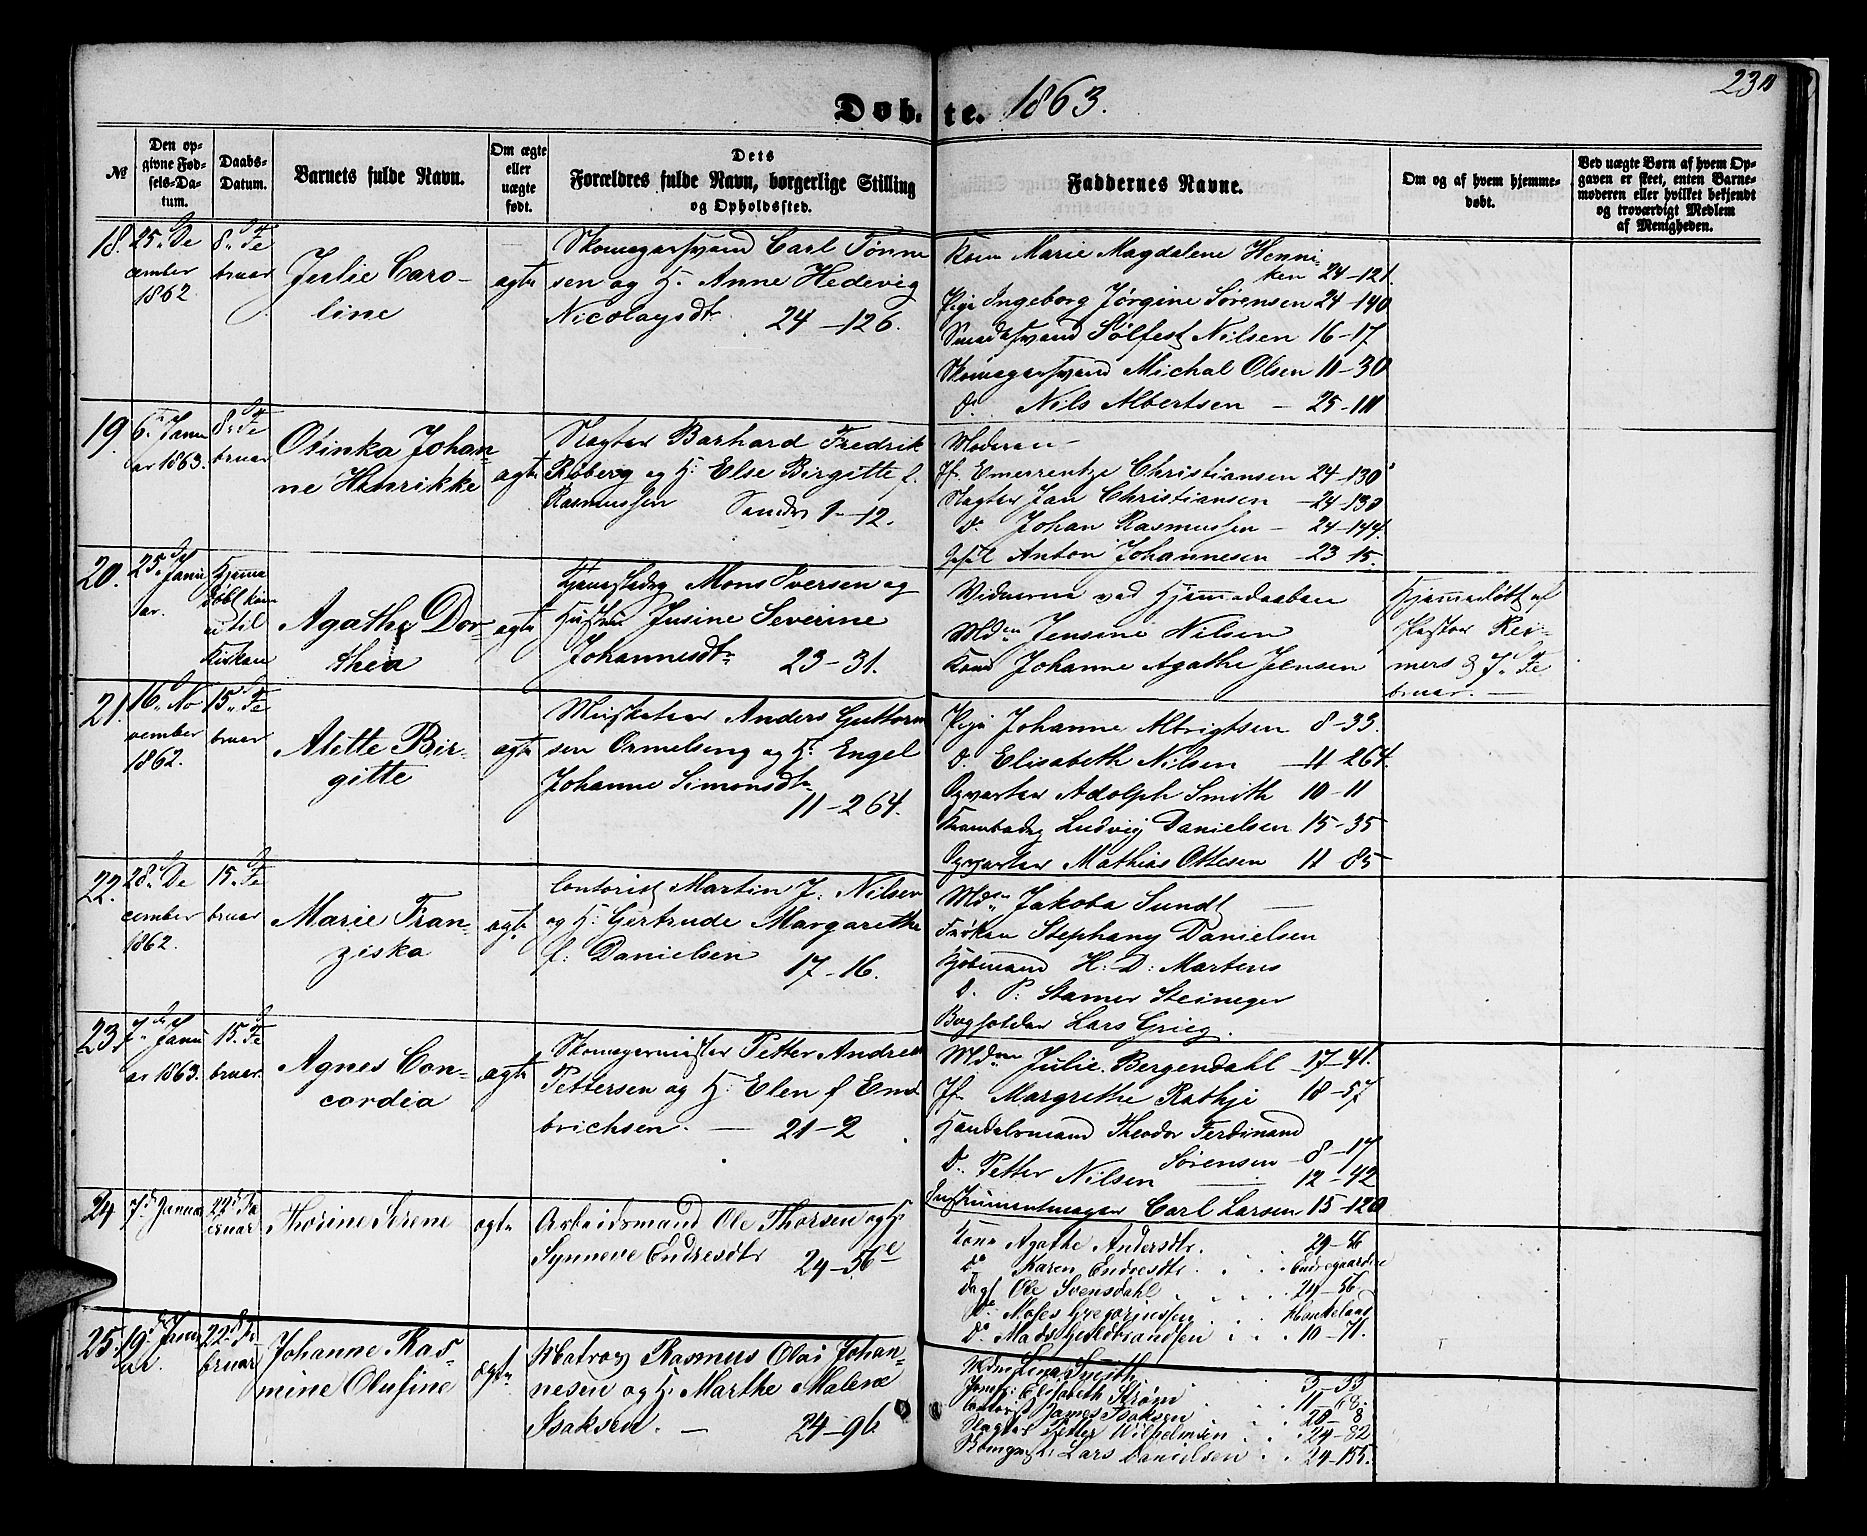 230
Døbte. 1863.
№
Den opgivne Fødsels-Datum.
Daabs-Datum.
Barnets fulde Navn.
Om ægte eller uægte født.
Dets Forældres fulde Navn, borgerlige Stilling og Opholdssted.
Faddernes Navne.
Om og af hvem hjemmedøbt.
Ved uægte Børn af hvem Opgaven er skeet, enten Barnemoderen eller hvilket bekjendt og troværdigt Medlem af Menigheden.
18. 25. De
cember
1862.
8. Fe
bruar
Julie Caro-
line
ægte
Skomagersvend Carl Tønne
sen og H. Anne Hedevig
Nicolaysdtr. 24-126.
Kone Marie Magdalene Henni-
ken 24-121.
Pige Ingeborg Jørgine Sørensen 24-140
Smedesvend Sølfest Nilsen 16-17
Skomagersvend Michal Olsen 11-30
do. Nils Albertsen - 25-
19. 6. Janu
ar 1863.
8. Fe
bruar
Otinka Johan-
ne Henrikke
ægte
Slagter Barhard Fredrik
Roberg og H. Else Birgitte f.
Rasmussen 1-12.
Moderen-
Jf. Emerentze Christiansen 24-130
Slagter Jan Christiansen -24-130
do. Johan Rasmussen - 24-144.
Anton Johannesen - 23-15.
20. 25. Janu
ar.
Hjemme
døbt kom
til
Kirken
Agathe Dor-
thea
ægte
Mons Iversen og
Hustru Jusine Severine
Johannesdtr 23-31.
Vidnerne ved Hjemmedaaben
Mdm Jensine Nilsen
Kone Johanne Agathe Jensen
Hjemmedøbt af
Pastor Rei-
mers d. 7. Fe
bruar.-
21. 16. No
vember
1862.
15. Fe
bruar
Alette Bir-
gitte
ægte
Musketeer Anders Guttorm
sen Ormelseng og H. Engel
Johanne Simonsdtr
11-264.
Pige Johanne Albrigtsen 8-33.
do. Elisabeth Nilsen -11-264.
Opvarter Adolph Smith 10-11
Ludvig Danielsen 15-35
Opvarter Mathias Ottesen 11 85
22. 28. De
cember
1862.
15. Fe
bruar
Marie Fran-
ziska
ægte
Contorist Martin J. Nilsen
og H. Gertrude Margarethe
f. Danielsen 17-16.
Mdm Jakoba Sundt
Frøken Stephany Danielsen
Kjøbmand H. D. Martens
do. P. Stamer Steineger
Bogholder Lars Grieg.
23. 7. Janu
ar 1863.
15. Fe
bruar.
Agnes Con-
cordia
ægte
Skomagermester Petter Andreas
Pettersen og H. Elen f. Emd
brichsen. - 21-2
Mdm Julie Bergendahl -17-41.
Jf. Margrethe Rathje 18-57
Handelsmand Theodor Ferdinand
Sørensen - 8-17
do. Petter Nilsen 12-42
Instrumentmager Carl Larsen 15-120
24 7. Januar
22. Fe
bruar
Thorine Serene
ægte
Arbeidsmand Ole Thorsen og H.
Synneve Endresdtr 24-56e
Kone Agathe Andersdtr. 29-
do Karen Endresdtr.
Ole Svensdahl 24-56
do. Moses Gregoriussen
do. Mads Hildbrandsen 10-71.
25. 19. Janu
ar.
22. Fe
bruar
Johanne Ras-
mine Olufine
ægte
Matros Rasmus Olai Johan-
nesen og H. Marthe Malene
Isaksen. - 24-96
Mdme Lena Smith 3-33
Jomf. Elisabeth Strøm 11-68.
Contorist James Isaksen 28-8
Slagter Petter Wilhelmsen 24-82
Lars Danielsen 24-155.